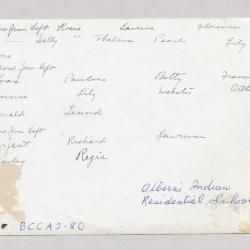 ow from left Rosie Laurina Florence
Sally Thelma Pearl Lily
ow from left
Pauline Betty Fran
Lily Webster
onald Leonard
ow from left
Richard Lawrence
Regis
Alberni Indian
Residential School
BCCA2-80